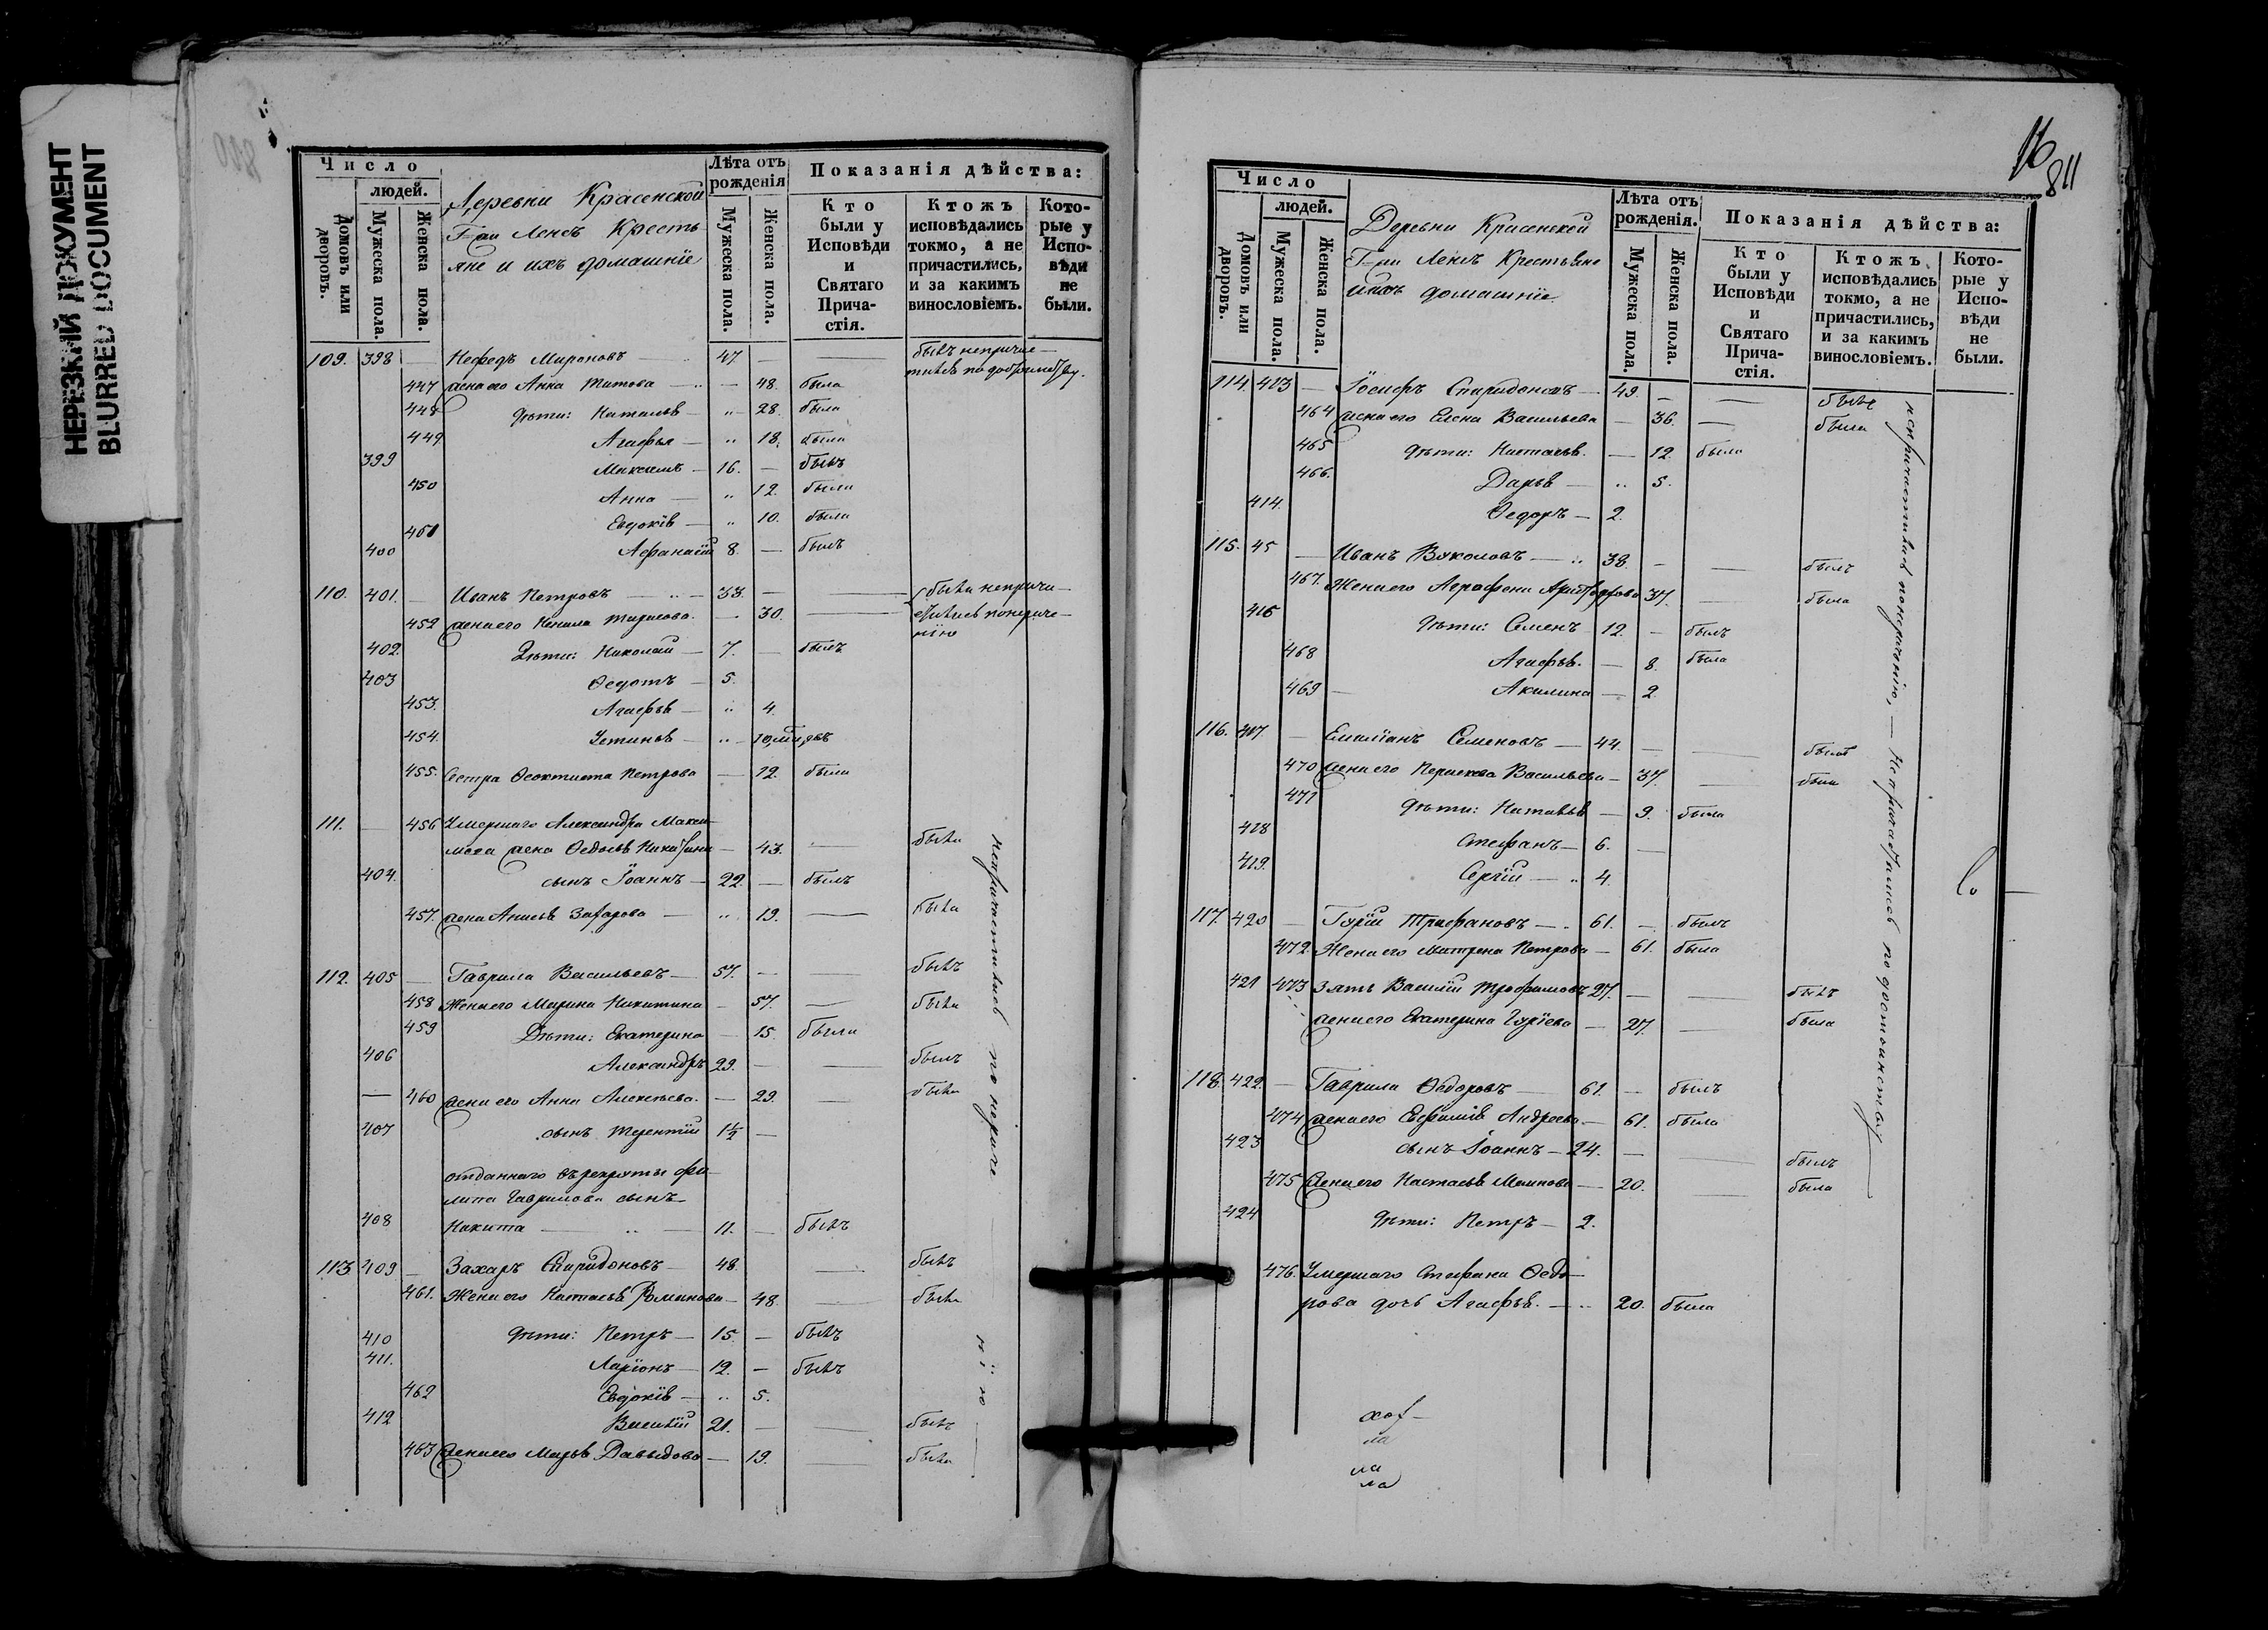 НЕРЕЗКИЙ ДОКУМЕНТ
BLURRED DOCUMENT
Число
людей.
Домовъ или дворовъ.
Мужеска пола.
Женска пола.
Деревни Красенской
Г-жи Ленсъ Кресть
яне и ихъ домашніе
Лѣта отъ рожденія
Мужеска пола.
Женска пола.
Показанія дѣйства:
Кто были у Исповѣди и Святаго Прича-стія.
Ктожъ исповѣдались токмо, а не причастились, и за какимъ винословіемъ.
Кото-рые у Испо-вѣди не были.
109. 398 — Нефедъ Мироновъ — 47 — былъ непричас-
447 жена его Анна Титова — — 48. была
448 дѣти: Наталья — " 28. была
449 Агафья — " 18. была
399 Максимъ — 16. — былъ
450 Анна — " 12. была
451 Евдокія — " 10. была
400 Афанасій 8. — былъ
110. 401. — Иванъ Петровъ — 33. — — были непричи-
452 жена его Ненила — 30. —
нію
402. Дѣти: Николай — 7. — былъ
403 Ѳедотъ — 5.
453. Агафья — " 4.
454. Устинья — "
455. Сестра Ѳеоктиста Петрова — 12. была
111. — 456 Умершаго Александра Макси-
мова жена Ѳедосья Никитина — 43. — была
404. сынъ Іоаннъ — 22. — былъ
457. жена Анисья Захарова — " 19. — была
112. 405 — Гаврила Васильевъ — 57. — — былъ
458 Жена его Марина Никитина — 57. — была
459 Дѣти: Екатерина — 15. была
406 Александръ 29. — — былъ
— 460 жена его Анна Алексѣева. — 29. — была
407 сынъ Терентій 1½ —
отданнаго въ рекруты Фи-
липа Гаврилова сынъ
408 Никита — " — 11. — былъ
113 409 — Захаръ Спиридоновъ 48. — былъ
461. Жена его Настасья Романова — 48. — была
410 дѣти: Петръ — 15. — былъ
411. Ларіонъ — 12. — былъ
462 Евдокія — " 5.
412 Василій 21. — — былъ
463 жена его Марья Давыдова — 19. — была
непричастились по нераче
нію
16
811
Число
людей.
Домовъ или дворовъ.
Мужеска пола.
Женска пола.
Деревни Красенской
Г-жи Ленсъ Крестьяне
ихъ домашніе
Лѣта отъ рожденія.
Мужеска пола.
Женска пола.
Показанія дѣйства:
Кто были у Исповѣди и Святаго Прича-стія.
Ктожъ исповѣдались токмо, а не причастились, и за какимъ винословіемъ.
Кото-рые у Испо-вѣди не были.
114. 413 — Іосифъ Спиридоновъ — 49. — — былъ
464 жена его Елена Васильева — 36. — была
465 дѣти: Настасья. — 12. была
466. Дарья — " 5.
414. Ѳедоръ — 2.
115. 45 — Иванъ Вуколовъ — " 38. — — былъ
467. Жена его Аграфена 37. — была
416 дѣти: Семенъ 12. — былъ
468 Агафья. — 8. была
469 — Акилина — 2.
116. 417. — Емиліанъ Семеновъ — 44. — — былъ
470 жена его Параскева Васильева — 37. — была
471 дѣти: Наталья — 9. была
418 Стефанъ — 6. —
419. Сергій — " 4.
117. 420 — Гурій Трифановъ — . 61. — былъ
472 Жена его Матрена Петрова — 61. была
421 473 Зять Василій Трофимовъ 27. — — былъ
жена его Екатерина Гуріева — 27. — была
118. 422. — Гаврила Ѳедоровъ — 61. — былъ
474 жена его Евфимія Андреева — 61. была
423 сынъ Іоаннъ — 24. — — былъ
475 жена его Настасья — 20. — была
424 дѣти: Петръ — 2.
476. Умершаго Стефана Ѳедо-
рова дочь Агафья. — " 20. была
непричастились по нераченію, — Непричастились по достоинству